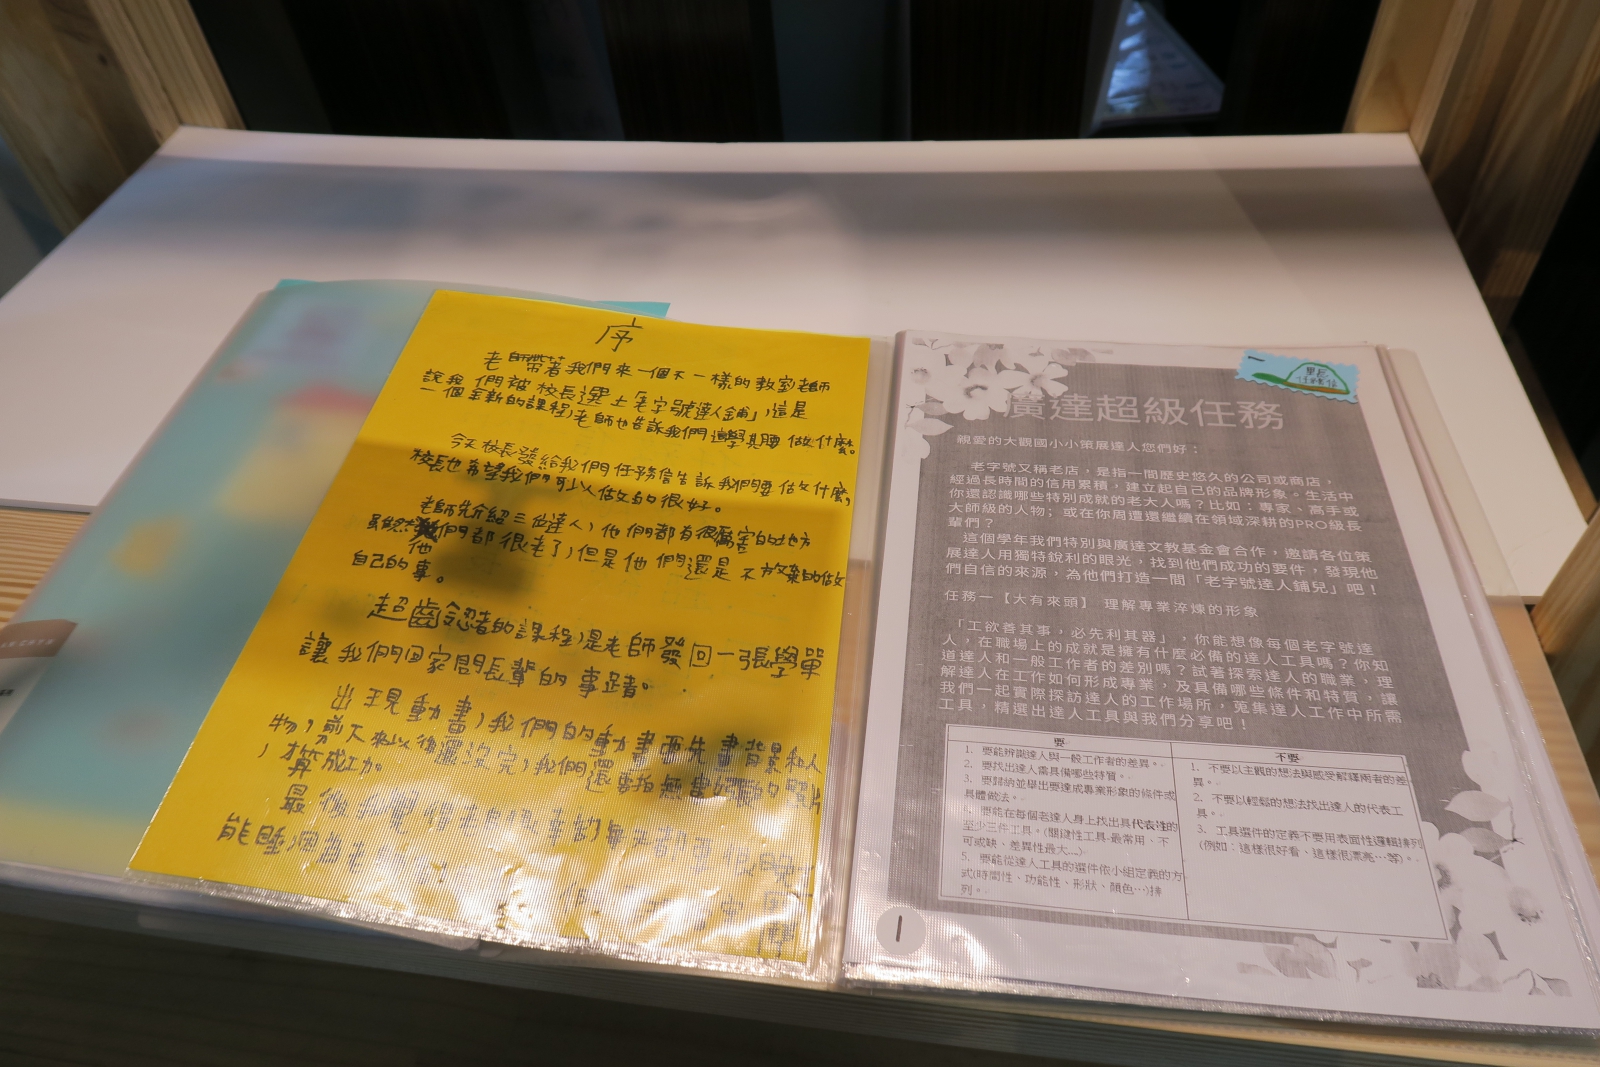 序
老師帶著我們來一個不一樣的教室老師
說我們被校長選上「老字號達人鋪」,這是
一個全新的課程,老師也告訴我們這學其腰做什麼。
今天校長發給我們任務信告訴我們腰做什麼,
校長也希望我們可以做的很好。
老師先介紹三位達人,他們都有很厲害的地方
雖然他們都很老了,但是他們還是不放棄的做
自己的事。
超齒忍者的課程,是老師發回一張學單
讓我們回家問長輩的事蹟。
出現動畫,我們的動畫要先畫背景和人
物,剪下來以後還沒完,我們還要拍無畫的照片
,才算成功。
最後
能睡,因為老
1
里長
任務信
廣達超級任務
親愛的大觀國小小策展達人您們好:
老字號又稱老店,是指一間歷史悠久的公司或商店,
經過長時間的信用累積,建立起自己的品牌形象。生活中
你還認識哪些特別成就的老大人嗎?比如:專家、高手或
大師級的人物;或在你周遭還繼續在領域深耕的PRO級長
輩們?
這個學年我們特別與廣達文教基金會合作,邀請各位策
展達人用獨特銳利的眼光,找到他們成功的要件,發現他
們自信的來源,為他們打造一間「老字號達人鋪兒」吧!
任務一【大有來頭】 理解專業淬煉的形象
「工欲善其事,必先利其器」,你能想像每個老字號達
人,在職場上的成就是擁有什麼必備的達人工具嗎?你知
道達人和一般工作者的差別嗎?試著探索達人的職業,理
解達人在工作如何形成專業,及具備哪些條件和特質,讓
我們一起實際探訪達人的工作場所,蒐集達人工作中所需
工具,精選出達人工具與我們分享吧!
要
1. 要能辨識達人與一般工作者的差異。
2. 要找出達人需具備哪些特質。
3. 要歸納並舉出要達成專業形象的條件或
具體做法。
要能在每個老達人身上找出具代表性的
至少三件工具。(關鍵性工具-最常用、不
可或缺、差異性最大...)
5. 要能從達人工具的選件依小組定義的方
式(時間性、功能性、形狀、顏色…)排
列。
不要
1. 不要以主觀的想法與感受解釋兩者的差
異。
2. 不要以輕鬆的想法找出達人的代表工
具。
3. 工具選件的定義不要用表面性邏輯排列
(例如:這樣很好看、這樣很漂亮…等)。
1